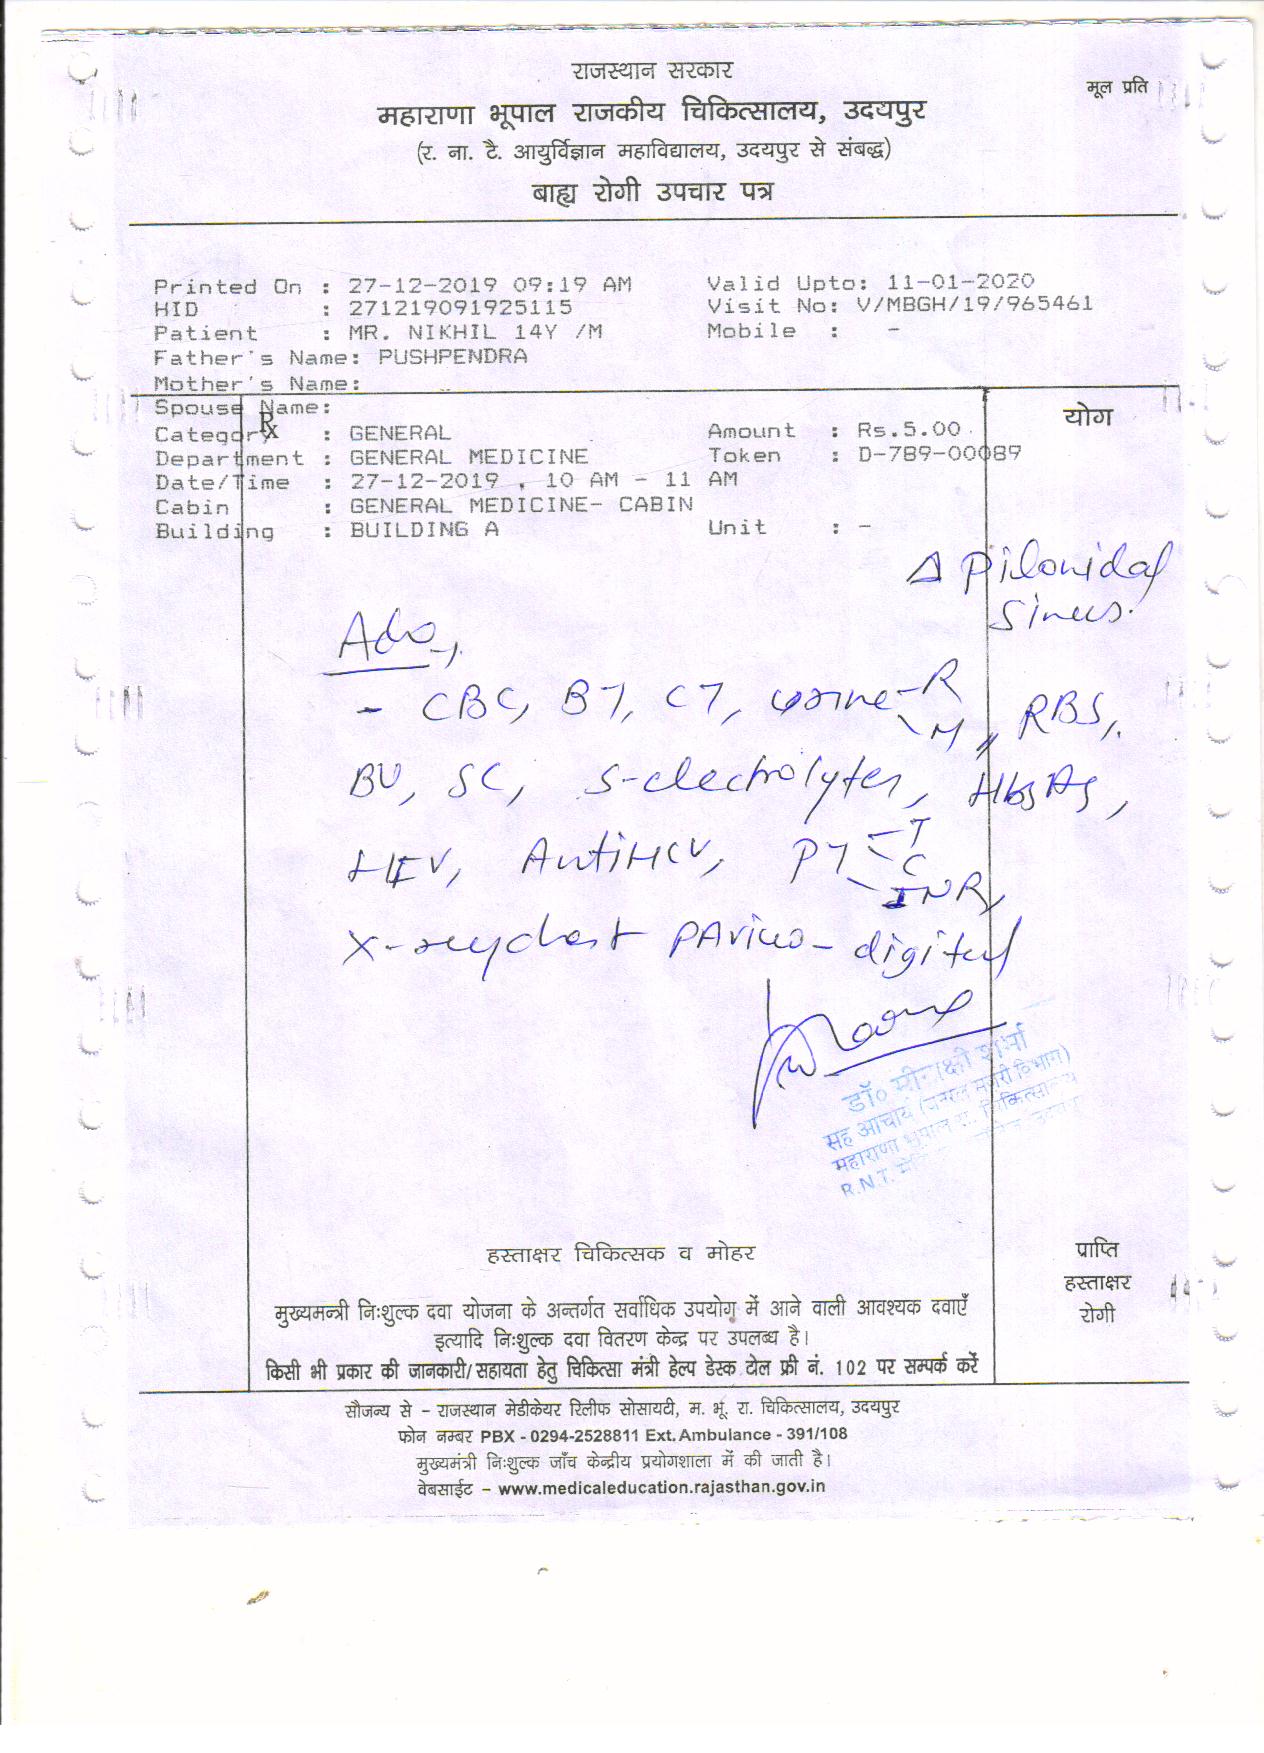 राजस्थान सरकार
मूल प्रति
महाराणा भूपाल राजकीय चिकित्सालय, उदयपुर
(र. ना. टै. आयुर्विज्ञान महाविद्यालय, उदयपुर से संबद्ध)
बाह्य रोगी उपचार पत्र
Printed On : 27-12-2019 09:19 AM Valid Upto: 11-01-2020
HID : 271219091925115 Visit No: V/MBGH/19/965461
Patient : MR. NIKHIL 14Y /M Mobile : -
Father's Name: PUSHPENDRA
Mother's Name:
Spouse Name:
Rx
योग
Category : GENERAL Amount : Rs.5.00
Department : GENERAL MEDICINE Token : D-789-00089
Date/Time : 27-12-2019 , 10 AM - 11 AM
Cabin : GENERAL MEDICINE- CABIN
Building : BUILDING A Unit : -
Δ Pilonidal
Sinus.
Adv,
- CBC, BT, CT, urine -R
-M, RBS,
BU, SC, S-electrolytes, HbsAg,
HIV, AntiHCV, PT -T
C
INR,
X-ray chest PA view - digital
डॉ० मीनाक्षी शर्मा
सह आचार्य (जनरल सर्जरी विभाग)
महाराणा भूपाल रा. चिकित्सालय
R.N.T.
हस्ताक्षर चिकित्सक व मोहर
प्राप्ति
हस्ताक्षर
रोगी
मुख्यमन्त्री निःशुल्क दवा योजना के अन्तर्गत सर्वाधिक उपयोग में आने वाली आवश्यक दवाएँ
इत्यादि निःशुल्क दवा वितरण केन्द्र पर उपलब्ध है।
किसी भी प्रकार की जानकारी/सहायता हेतु चिकित्सा मंत्री हेल्प डेस्क टोल फ्री नं. 102 पर सम्पर्क करें
सौजन्य से – राजस्थान मेडीकेयर रिलीफ सोसायटी, म. भू. रा. चिकित्सालय, उदयपुर
फोन नम्बर PBX - 0294-2528811 Ext. Ambulance - 391/108
मुख्यमंत्री निःशुल्क जाँच केन्द्रीय प्रयोगशाला में की जाती है।
वेबसाईट – www.medicaleducation.rajasthan.gov.in